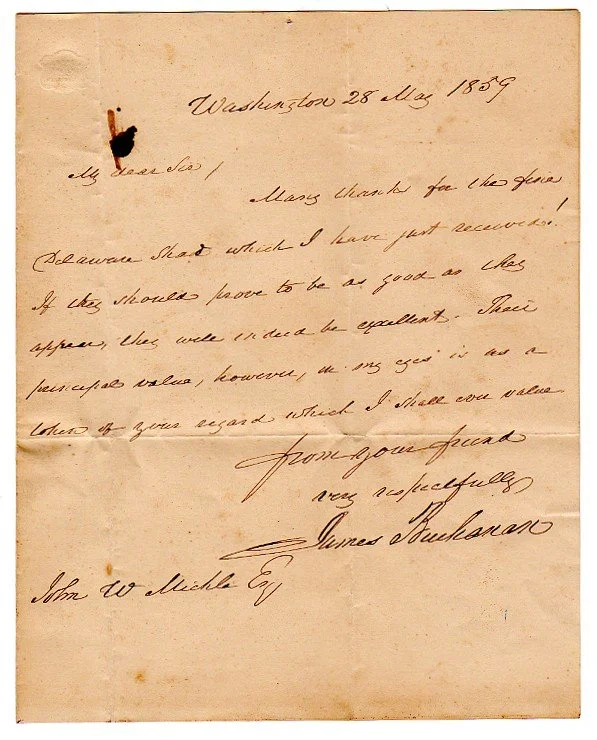 Washington 28 May 1859
My dear Sir,
Many thanks for the fine
Delaware Shad which I have just received!
If they should prove to be as good as they
appear, they will indeed be excellent. Their
principal value, however, in my eyes is as a
token of your regard which I shall ever value
from your friend
very respectfully
James Buchanan
John W Mickle Esq